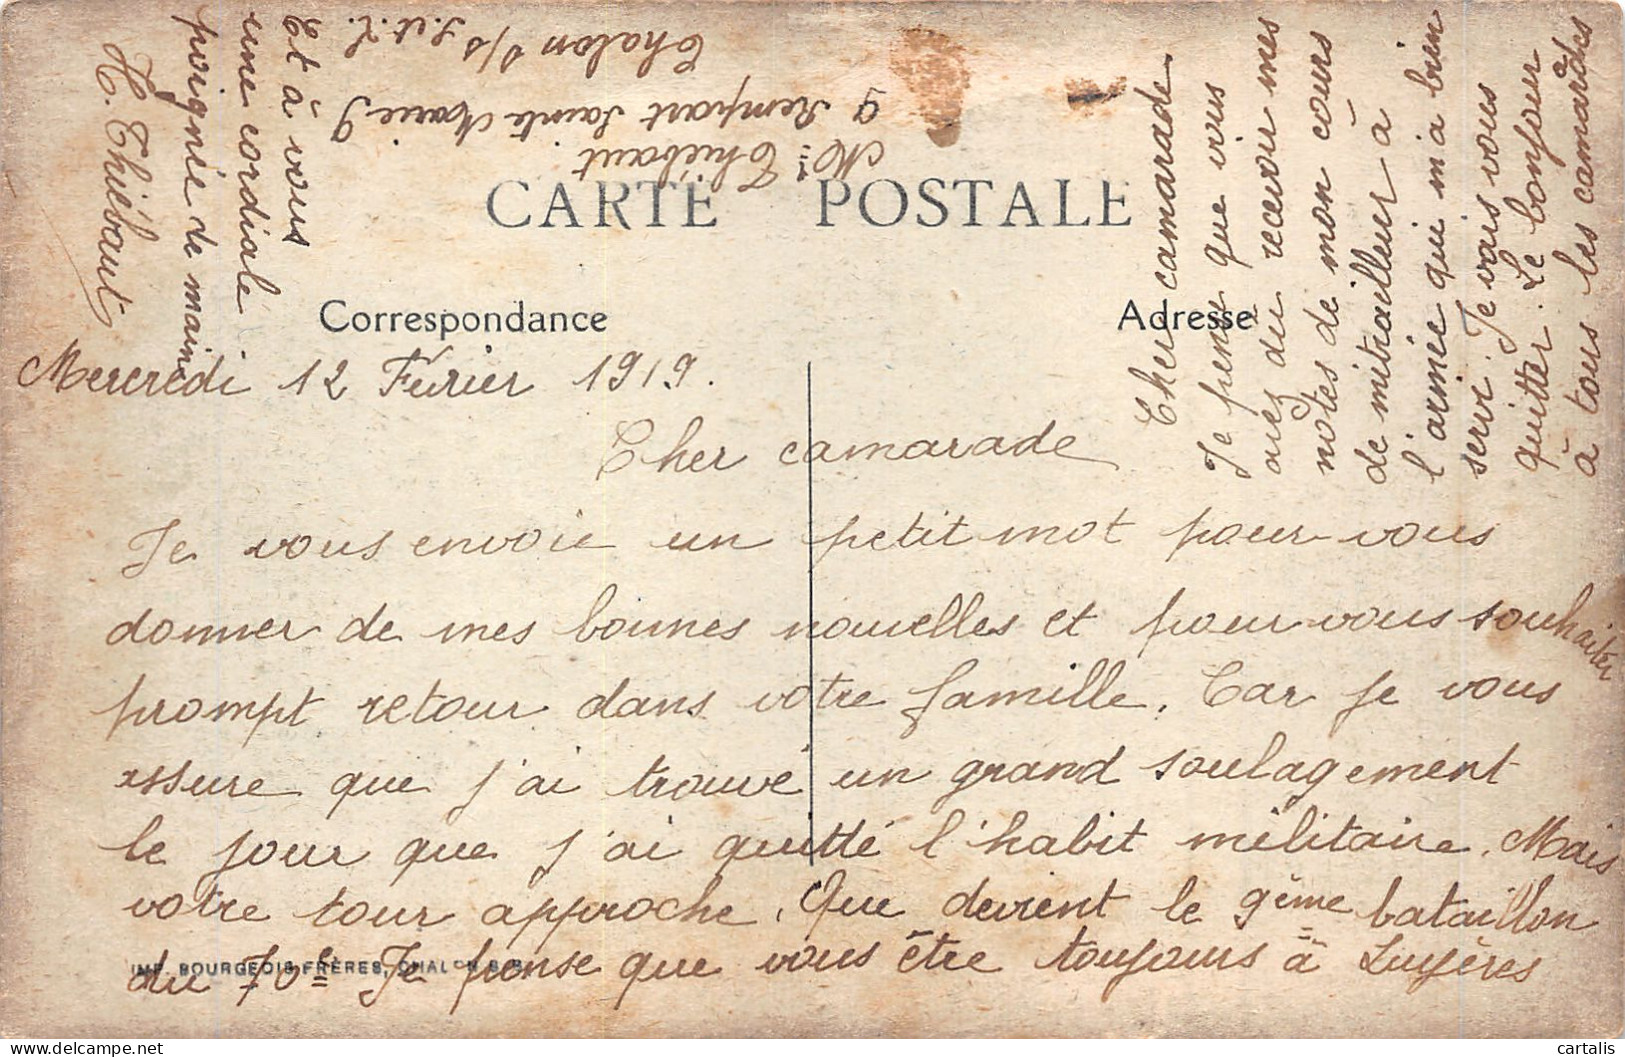 CARTE POSTALE
Correspondance
Adresse
Mercredi 12 Février 1919.
Cher camarade
Je vous envoie un petit mot pour vous
donner de mes bonnes nouvelles et pour vous souhaiter
prompt retour dans votre famille. Car je vous
assure que j'ai trouvé un grand soulagement
le jour que j'ai quitté l'habit militaire. Mais
votre tour approche. Que devient le 9ème bataillon
du 70e Je pense que vous être toujours à
IMP. BOURGEOIS FRÈRES, CHALON S.S.
Cher camarade.
Je pense que vous
avez du recevoir mes
notes de mon cours
de mitrailleur à
l'armée qui m'a bien
servi. Je vais vous
quitter. Le bonjour
à tous les camarades
Et à vous
une cordiale
poignée de main
H. Thiébaut
Mr Thiébaut
9 Rempart Sainte Marie 9
Chalon s/s S. et L.
cartalis
delcampe.net